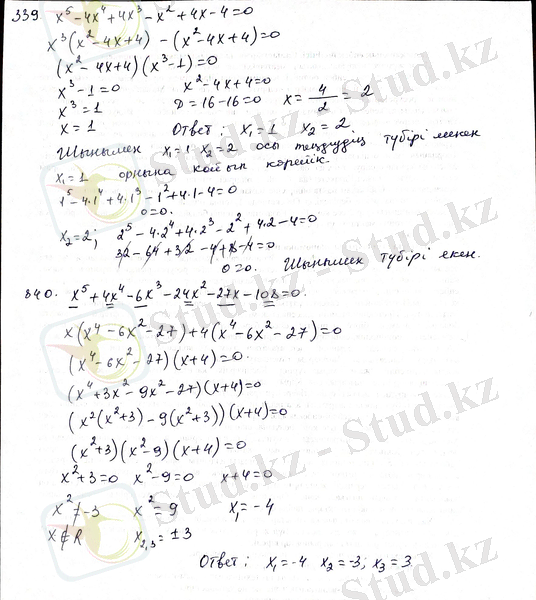 339 x⁵-4x⁴+4x³-x²+4x-4=0
x³(x²-4x+4)-(x²-4x+4)=0
(x²-4x+4)(x³-1)=0
x³-1=0 x²-4x+4=0
x³=1 D=16-16=0 x=4/2=2
x=1 Ответ: x₁=1 x₂=2
Шынымен x₁=1 x₂=2 осы теңдеудің түбірі мекен
x₁=1 орнына қойып көрейік.
1⁵-4·1⁴+4·1³-1²+4·1-4=0
0=0.
x₂=2; 2⁵-4·2⁴+4·2³-2²+4·2-4=0
32-64+32-4+8-4=0
0=0. Шынымен түбірі екен.
340. x⁵+4x⁴-6x³-24x²-27x-108=0.
x(x⁴-6x²-27)+4(x⁴-6x²-27)=0
(x⁴-6x²-27)(x+4)=0.
(x⁴+3x²-9x²-27)(x+4)=0
(x²(x²+3)-9(x²+3))(x+4)=0
(x²+3)(x²-9)(x+4)=0
x²+3=0 x²-9=0 x+4=0
x²≠-3 x²=9 x₁=-4
x∉R x₂,₃=±3
Ответ: x₁=-4 x₂=-3; x₃=3
Stud.kz
Stud.kz
Stud.kz
Stud.kz
Stud.kz
Stud.kz